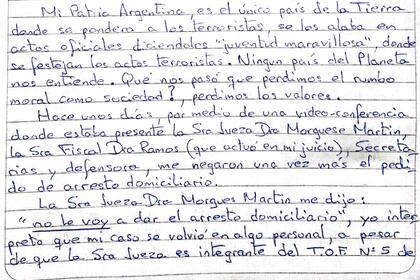 Mi Patria Argentina, es el único país de la Tierra
donde se pondera a los terroristas, se los alaba en
actos oficiales diciendoles "juventud maravillosa", donde
se festejan los actos terroristas. Ningun país del Planeta
nos entiende. Qué nos pasó que perdimos el rumbo
moral como sociedad?, perdimos los valores.
Hace unos días, por medio de una video-conferencia
donde estaba presente la Sra Jueza Dra Morguese Martin,
la Sra Fiscal Dra Ramos (que actuó en mi juicio), Secreta
rias y defensora, me negaron una vez más el pedi
do de arresto domiciliario.
La Sra Jueza Dra Morgues Martin me dijo:
"no le voy a dar el arresto domiciliario", yo inter
preto que mi caso se volvió en algo personal, a pesar
de que la Sra Jueza es integrante del T.O.F. Nº 5 de